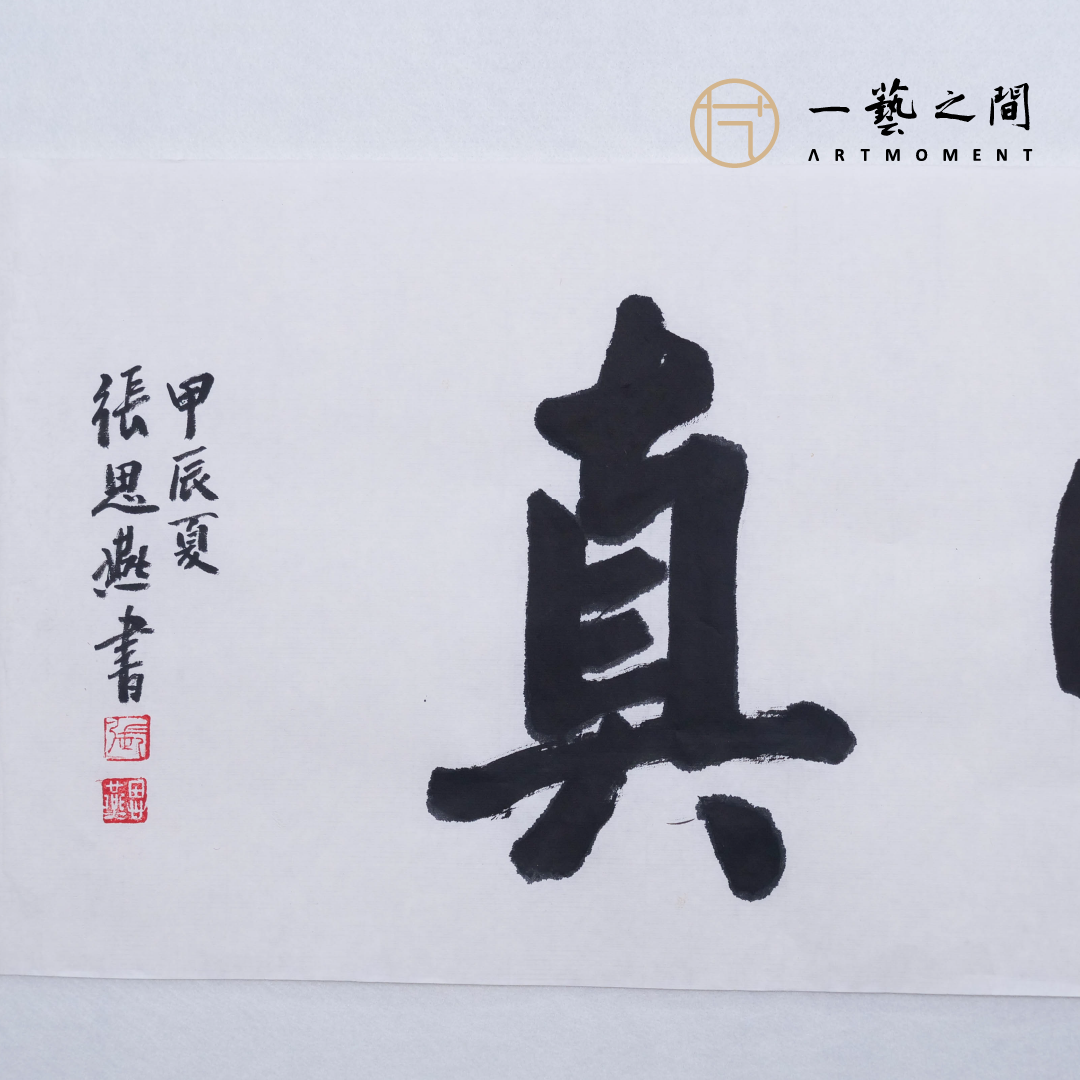 一藝之間
ARTMOMENT
真
甲辰夏
張思燕書
張
思燕